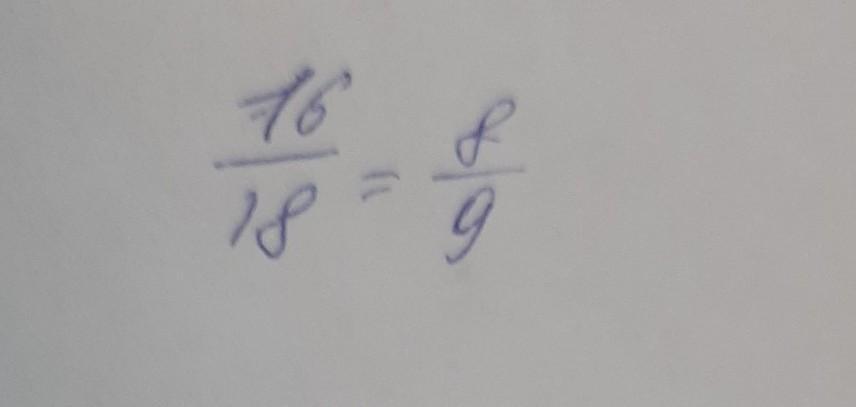 76/18 = 8/9